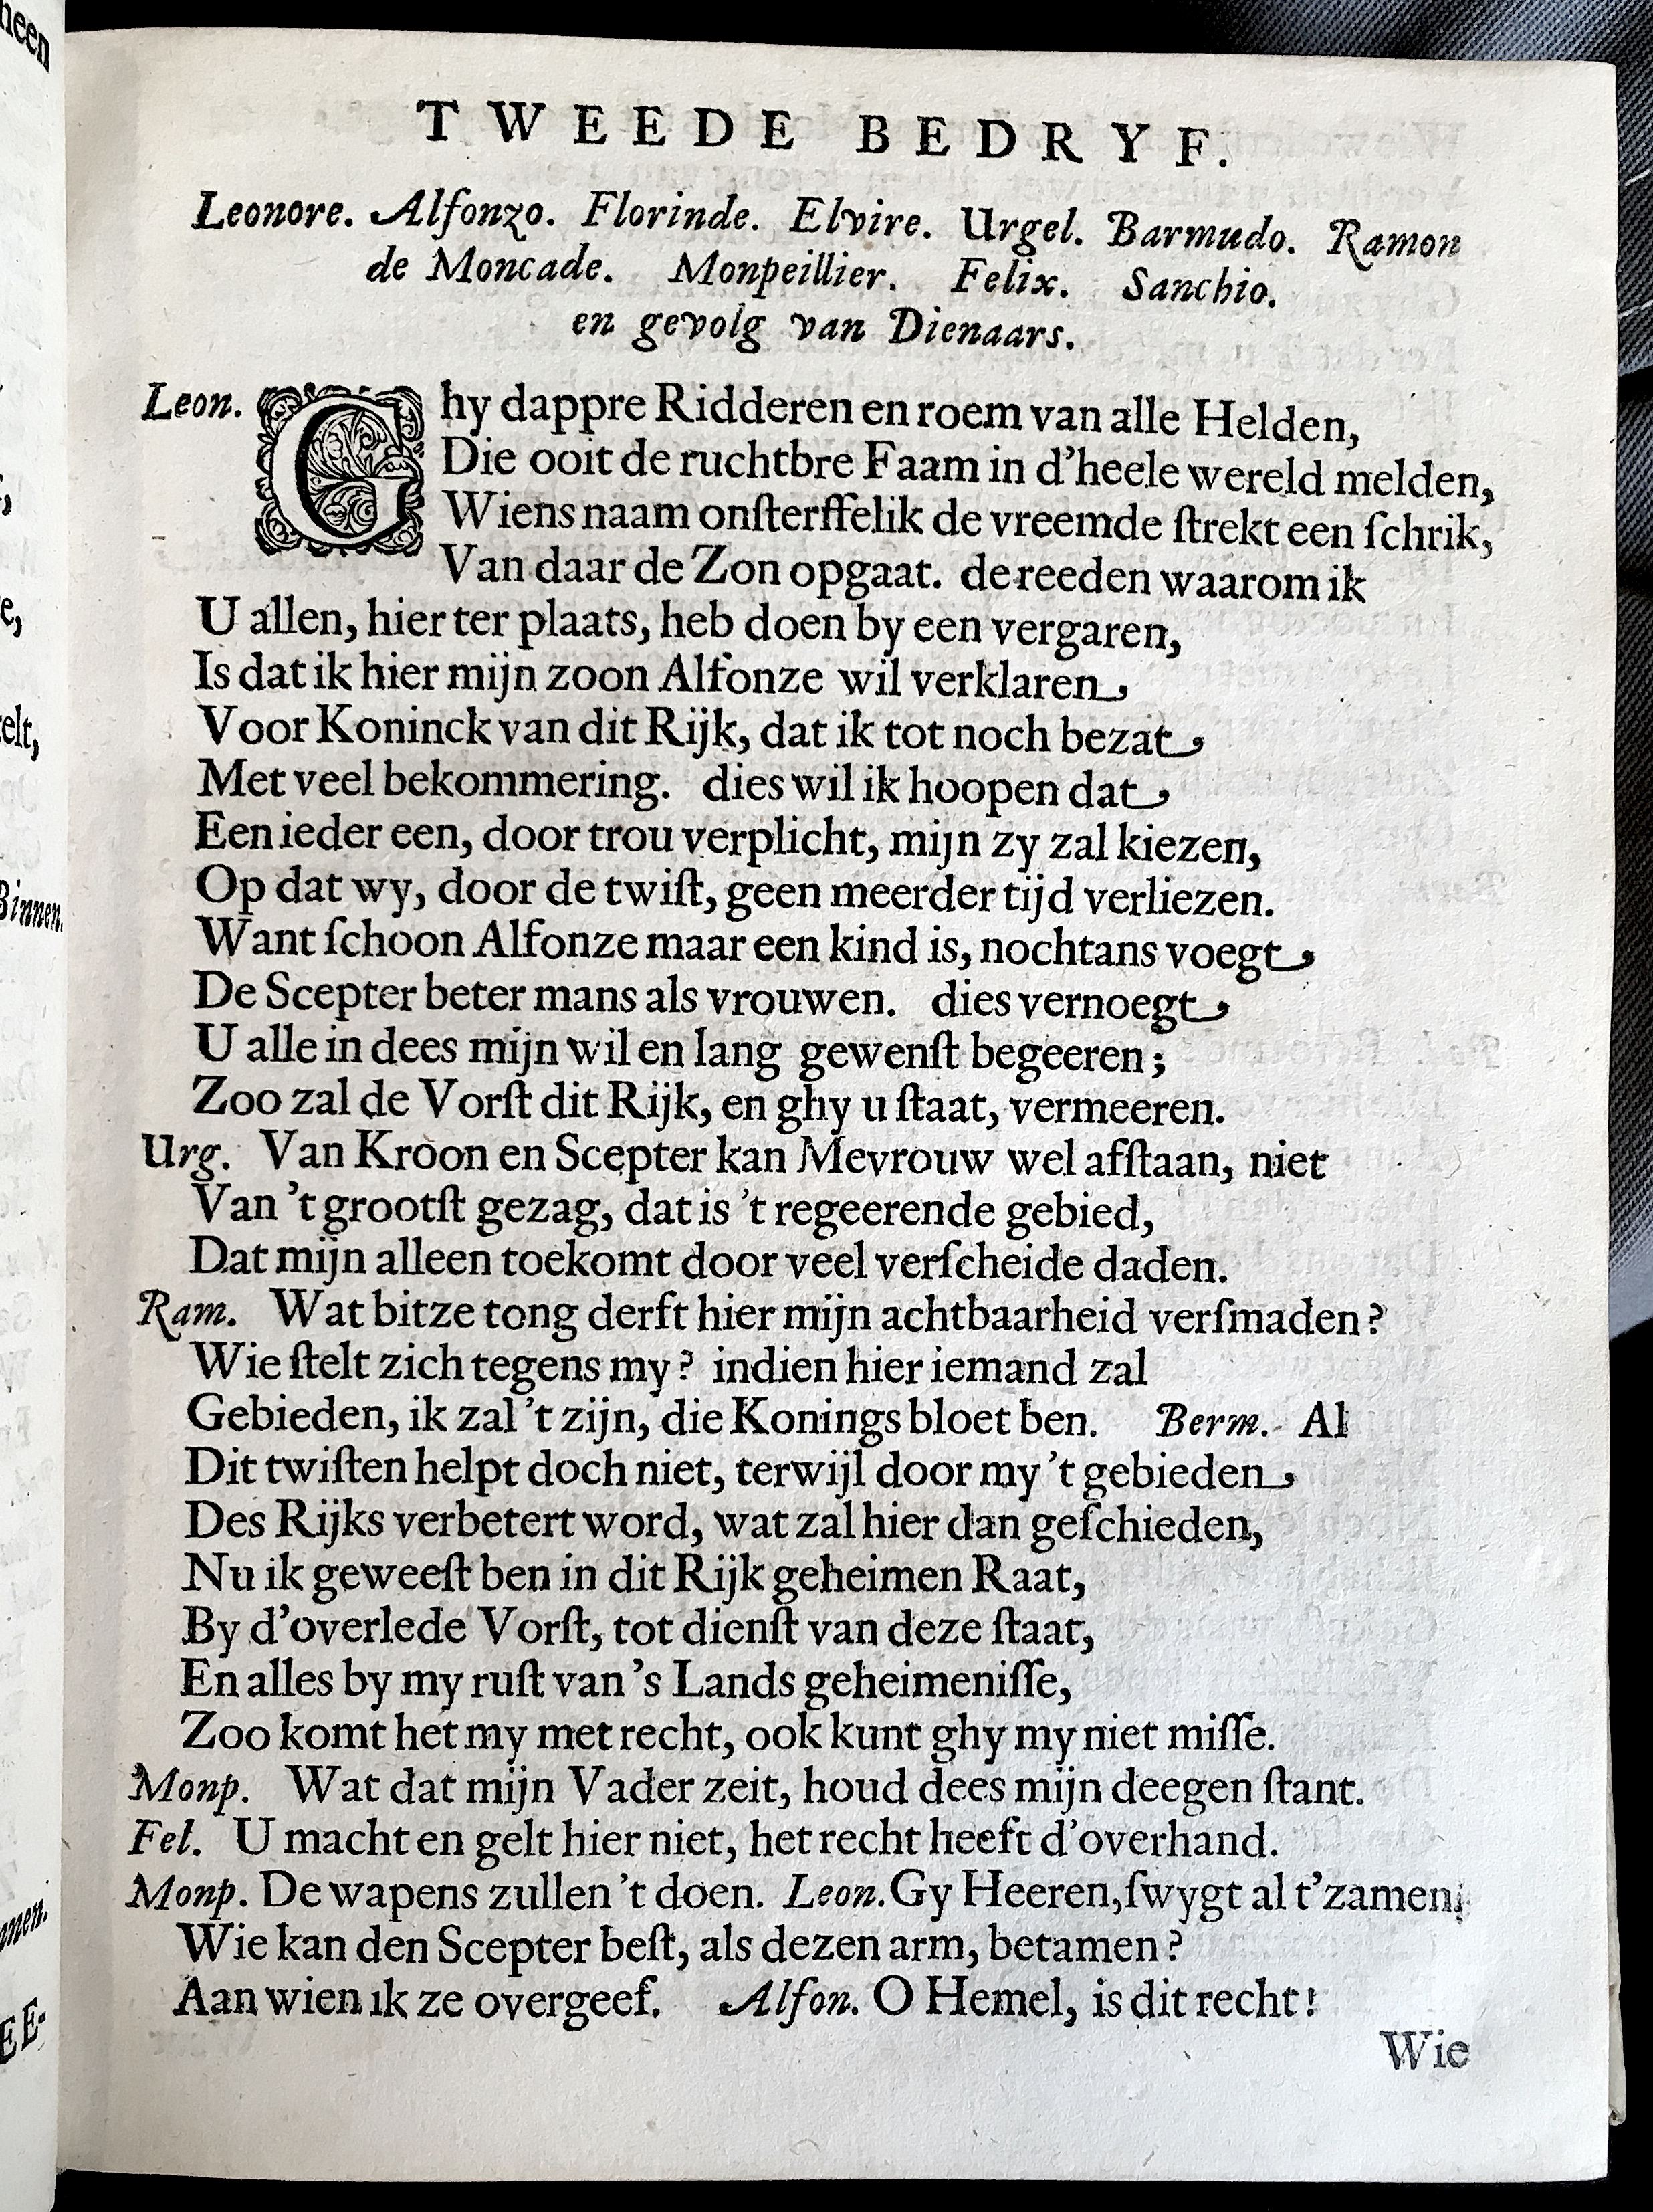 TWEEDE BEDRYF.
Leonore. Alfonzo. Florinde. Elvire. Urgel. Barmudo. Ramon
de Moncade. Monpeillier. Felix. Sanchio.
en gevolg van Dienaars.
Leon. Ghy dappre Ridderen en roem van alle Helden,
Die ooit de ruchtbre Faam in d'heele wereld melden,
Wiens naam onſterffelik de vreemde ſtrekt een ſchrik,
Van daar de Zon opgaat. de reeden waarom ik
U allen, hier ter plaats, heb doen by een vergaren,
Is dat ik hier mijn zoon Alfonze wil verklaren
Voor Koninck van dit Rijk, dat ik tot noch bezat
Met veel bekommering. dies wil ik hoopen dat
Een ieder een, door trou verplicht, mijn zy zal kiezen,
Op dat wy, door de twiſt, geen meerder tijd verliezen.
Want ſchoon Alfonze maar een kind is, nochtans voegt
De Scepter beter mans als vrouwen. dies vernoegt
U alle in dees mijn wil en lang gewenſt begeeren;
Zoo zal de Vorſt dit Rijk, en ghy u ſtaat, vermeeren.
Urg. Van Kroon en Scepter kan Mevrouw wel afſtaan, niet
Van 't grootſt gezag, dat is 't regeerende gebied,
Dat mijn alleen toekomt door veel verſcheide daden.
Ram. Wat bitze tong derft hier mijn achtbaarheid verſmaden?
Wie ſtelt zich tegens my? indien hier iemand zal
Gebieden, ik zal 't zijn, die Konings bloet ben. Berm. Al
Dit twiſten helpt doch niet, terwijl door my 't gebieden
Des Rijks verbetert word, wat zal hier dan geſchieden,
Nu ik geweeſt ben in dit Rijk geheimen Raat,
By d'overlede Vorſt, tot dienſt van deze ſtaat,
En alles by my ruſt van 's Lands geheimeniſſe,
Zoo komt het my met recht, ook kunt ghy my niet miſſe.
Monp. Wat dat mijn Vader zeit, houd dees mijn deegen ſtant.
Fel. U macht en gelt hier niet, het recht heeft d'overhand.
Monp. De wapens zullen 't doen. Leon. Gy Heeren, ſwygt al t'zamen;
Wie kan den Scepter beſt, als dezen arm, betamen?
Aan wien ik ze overgeef. Alfon. O Hemel, is dit recht!
Wie